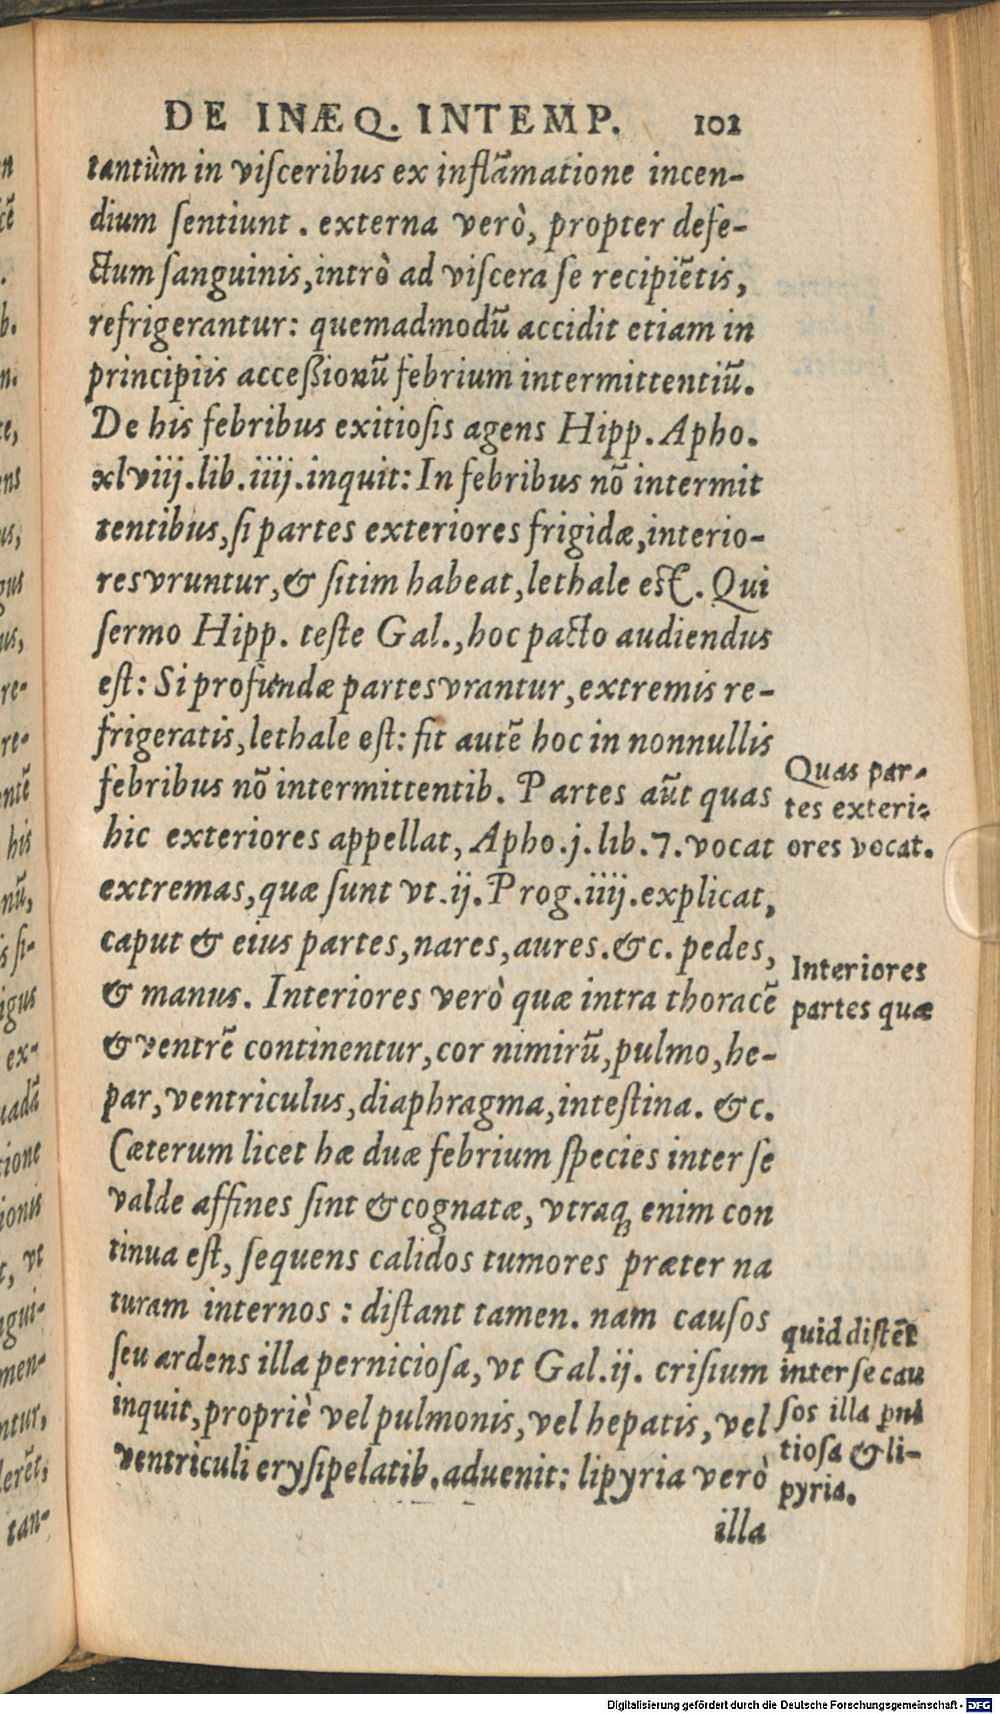 DE INÆQ. INTEMP. 102
tantùm in viſceribus ex inflãmatione incen-
dium ſentiunt . externa verò, propter defe-
ctum ſanguinis, intrò ad viſcera ſe recipiẽtis,
refrigerantur: quemadmodũ accidit etiam in
principiis acceßionũ febrium intermittentiũ.
De his febribus exitioſis agens Hipp. Apho.
xlviij. lib. iiij. inquit: In febribus nõ intermit
tentibus, ſi partes exteriores frigidæ, interio-
res vruntur, & ſitim habeat, lethale eſt. Qui
ſermo Hipp. teſte Gal., hoc pacto audiendus
eſt: Si profundæ partes vrantur, extremis re-
frigeratis, lethale eſt: fit autẽ hoc in nonnullis
febribus nõ intermittentib. Partes aũt quas
hic exteriores appellat, Apho. j. lib. 7. vocat
extremas, quæ ſunt vt .ij. Prog. iiij. explicat,
caput & eius partes, nares, aures. &c. pedes,
& manus. Interiores verò quæ intra thoracẽ
& ventrẽ continentur, cor nimirũ, pulmo, he-
par, ventriculus, diaphragma, inteſtina. &c.
Cæterum licet hæ duæ febrium ſpecies inter ſe
valde affines ſint & cognatæ, vtraq; enim con
tinua eſt, ſequens calidos tumores præter na
turam internos : diſtant tamen. nam cauſos
ſeu ardens illa pernicioſa, vt Gal. ij. criſium
inquit, propriè vel pulmonis, vel hepatis, vel
ventriculi eryſipelatib. aduenit: lipyria verò
illa
Quas par-
tes exteri-
ores vocat.
Interiores
partes quæ
quid diſtẽt
inter ſe cau
ſos illa
tioſa & li-
pyria.
n
cẽ
.
b.
n.
te,
ens
us,
gus
us,
re-
re-
ntẽ
his
nũ,
s ſi-
igus
ex-
uadã
tione
ionis
t, vt
ngui-
men-
ntur,
lerẽt,
tan-
Digitalisierung gefördert durch die Deutsche Forschungsgemeinschaft - DFG